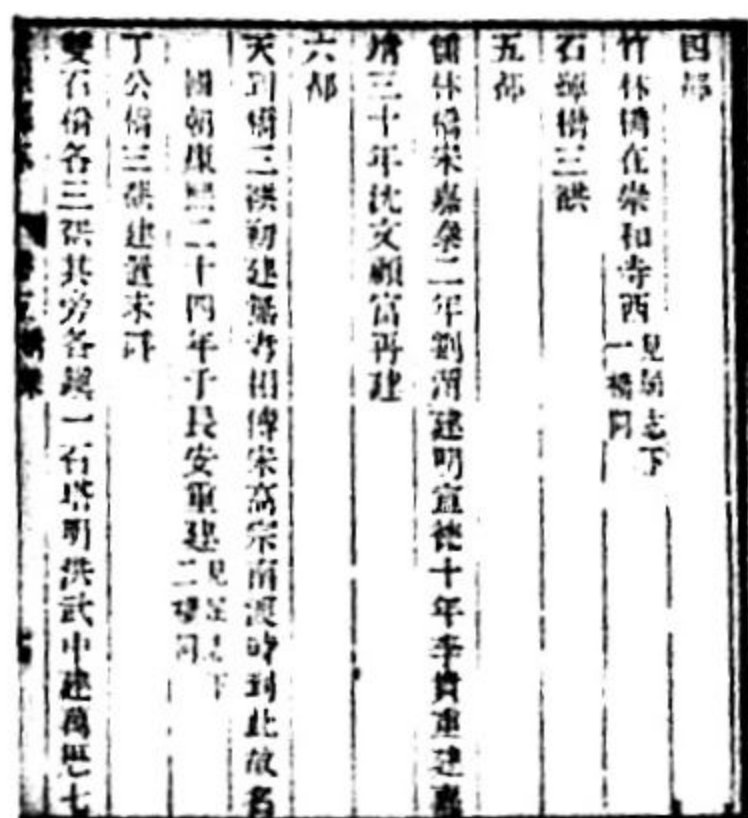 四都
竹林橋在崇和寺西見縣志下一橋同
石䃮橋三洪
五都
儒林橋宋嘉泰二年劉渭建明宣德十年李貴重建嘉
靖三十年沈文顯富再建
六都
天到橋三洪剏建無考相傳宋高宗南渡時到此故名
國朝康熙二十四年于長安重建見縣志下二橋同
丁公橋三洪建置未詳
雙石橋各三洪其旁各鎮一石塔明洪武中建萬曆七